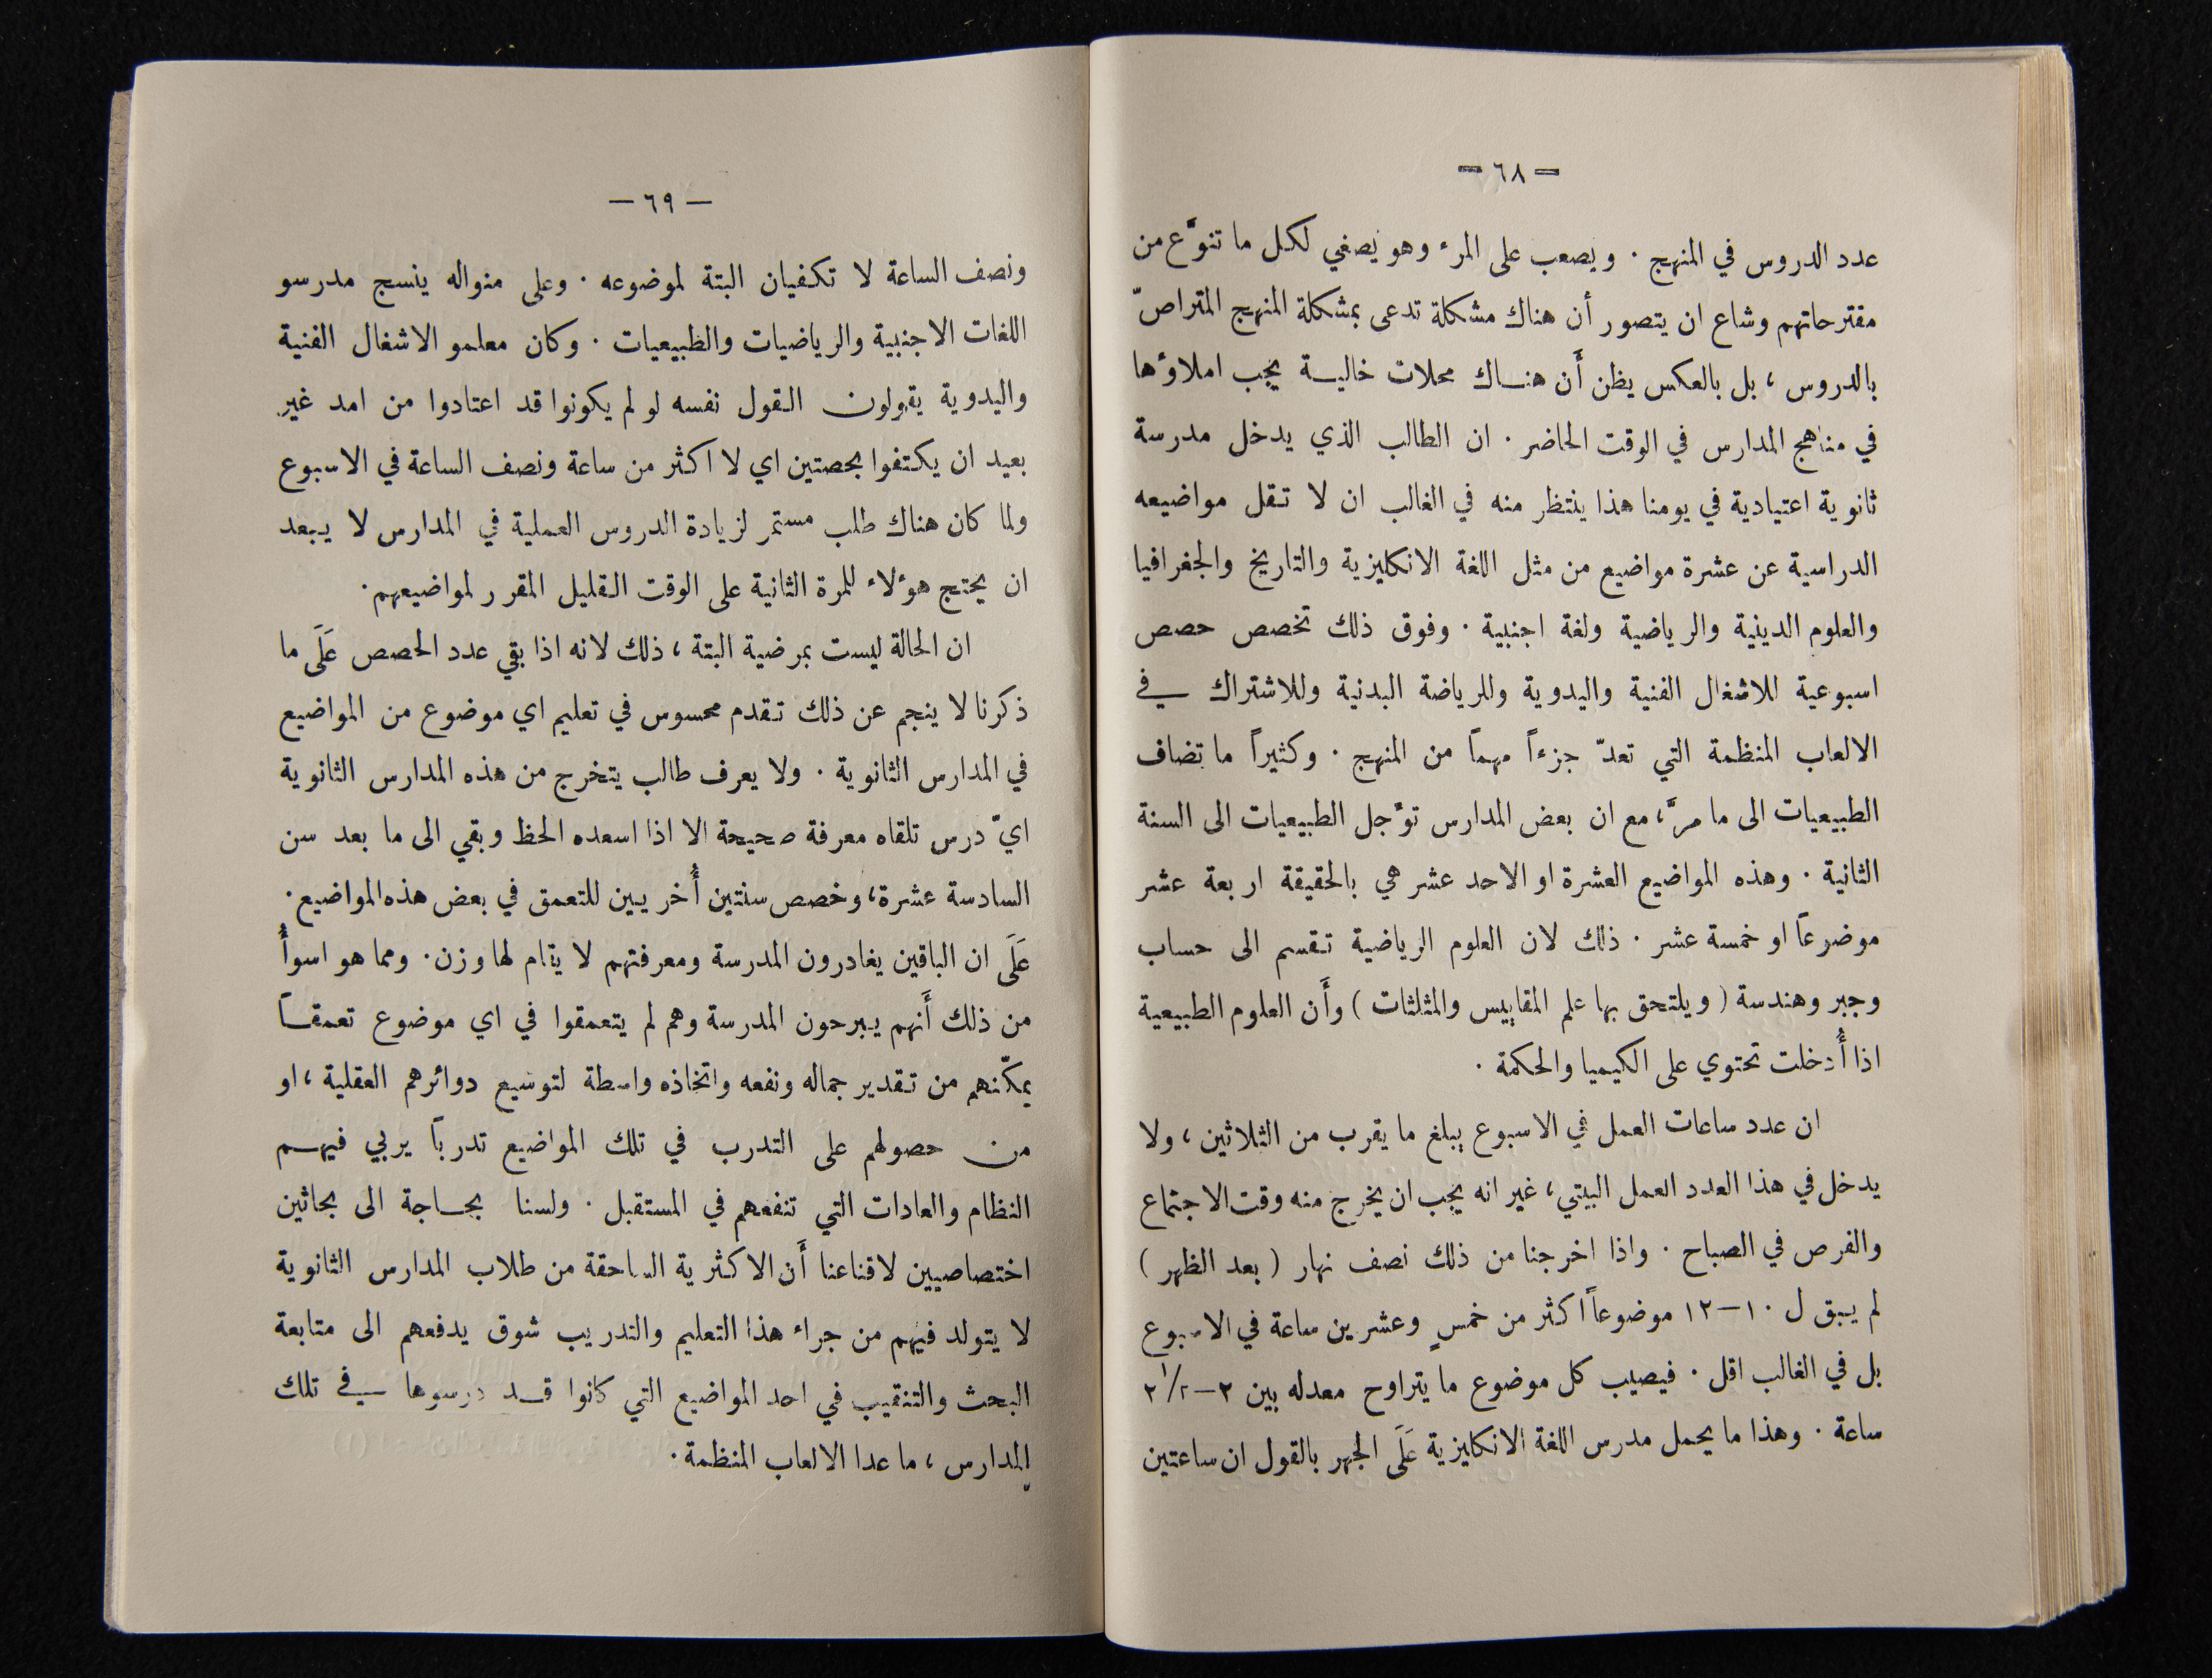 — ٦٨ —
عدد الدروس في المنهج . ويصعب على المرء وهو يصغي لكل ما تنوَّع من
مقترحاتهم وشاع ان يتصور أن هناك مشكلة تدعى بمشكلة المنهج المتراصّ
بالدروس ، بل بالعكس يظن أَن هناك محلات خالية يجب املاؤها
في مناهج المدارس في الوقت الحاضر . ان الطالب الذي يدخل مدرسة
ثانوية اعتيادية في يومنا هذا ينتظر منه في الغالب ان لا تقل مواضيعه
الدراسية عن عشرة مواضيع من مثل اللغة الانكليزية والتاريخ والجغرافيا
والعلوم الدينية والرياضية ولغة اجنبية . وفوق ذلك تخصص حصص
اسبوعية للاشغال الفنية واليدوية وللرياضة البدنية وللاشتراك في
الالعاب المنظمة التي تعدّ جزءاً مهماً من المنهج . وكثيراً ما تضاف
الطبيعيات الى ما مرَّ ، مع ان بعض المدارس تؤَجل الطبيعيات الى السنة
الثانية . وهذه المواضيع العشرة او الاحد عشر هي بالحقيقة اربعة عشر
موضوعاً او خمسة عشر . ذلك لان العلوم الرياضية تقسم الى حساب
وجبر وهندسة ( ويلتحق بها علم المقاييس والمثلثات ) وأَن العلوم الطبيعية
اذا أُدخلت تحتوي على الكيميا والحكمة .
ان عدد ساعات العمل في الاسبوع يبلغ ما يقرب من الثلاثين ، ولا
يدخل في هذا العدد العمل البيتي ، غير انه يجب ان يخرج منه وقت الاجتماع
والفرص في الصباح . واذا اخرجنا من ذلك نصف نهار ( بعد الظهر )
لم يبق ل ١٠—١٢ موضوعاً اكثر من خمسٍ وعشرين ساعة في الاسبوع
بل في الغالب اقل . فيصيب كل موضوع ما يتراوح معدله بين ٢—٢١/٢
ساعة . وهذا ما يحمل مدرس اللغة الانكليزية عَلَى الجهر بالقول ان ساعتين
— ٦٩ —
ونصف الساعة لا تكفيان البتة لموضوعه . وعلى منواله ينسج مدرسو
اللغات الاجنبية والرياضيات والطبيعيات . وكان معلمو الاشغال الفنية
واليدوية يقولون القول نفسه لو لم يكونوا قد اعتادوا من امد غير
بعيد ان يكتفوا بحصتين اي لا اكثر من ساعة ونصف الساعة في الاسبوع
ولما كان هناك طلب مستمر لزيادة الدروس العملية في المدارس لا يبعد
ان يحتج هؤلاء للمرة الثانية على الوقت القليل المقرر لمواضيعهم .
ان الحالة ليست بمرضية البتة ، ذلك لانه اذا بقي عدد الحصص عَلَى ما
ذكرنا لا ينجم عن ذلك تقدم محسوس في تعليم اي موضوع من المواضيع
في المدارس الثانوية . ولا يعرف طالب يتخرج من هذه المدارس الثانوية
ايّ درس تلقاه معرفة صحيحة الا اذا اسعده الحظ وبقي الى ما بعد سن
السادسة عشرة ، وخصص سنتين أُخريين للتعمق في بعض هذه المواضيع .
عَلَى ان الباقين يغادرون المدرسة ومعرفتهم لا يقام لها وزن . ومما هو اسوأُ
من ذلك أَنهم يبرحون المدرسة وهم لم يتعمقوا في اي موضوع تعمقاً
يمكّنهم من تقدير جماله ونفعه واتخاذه واسطة لتوسيع دوائرهم العقلية ، او
من حصولهم على التدرب في تلك المواضيع تدرباً يربي فيهم
النظام والعادات التي تنفعهم في المستقبل . ولسنا بحاجة الى بحاثين
اختصاصيين لاقناعنا أَن الاكثرية الساحقة من طلاب المدارس الثانوية
لا يتولد فيهم من جراء هذا التعليم والتدريب شوق يدفعهم الى متابعة
البحث والتنقيب في احد المواضيع التي كانوا قد درسوها في تلك
المدارس ، ما عدا الالعاب المنظمة .